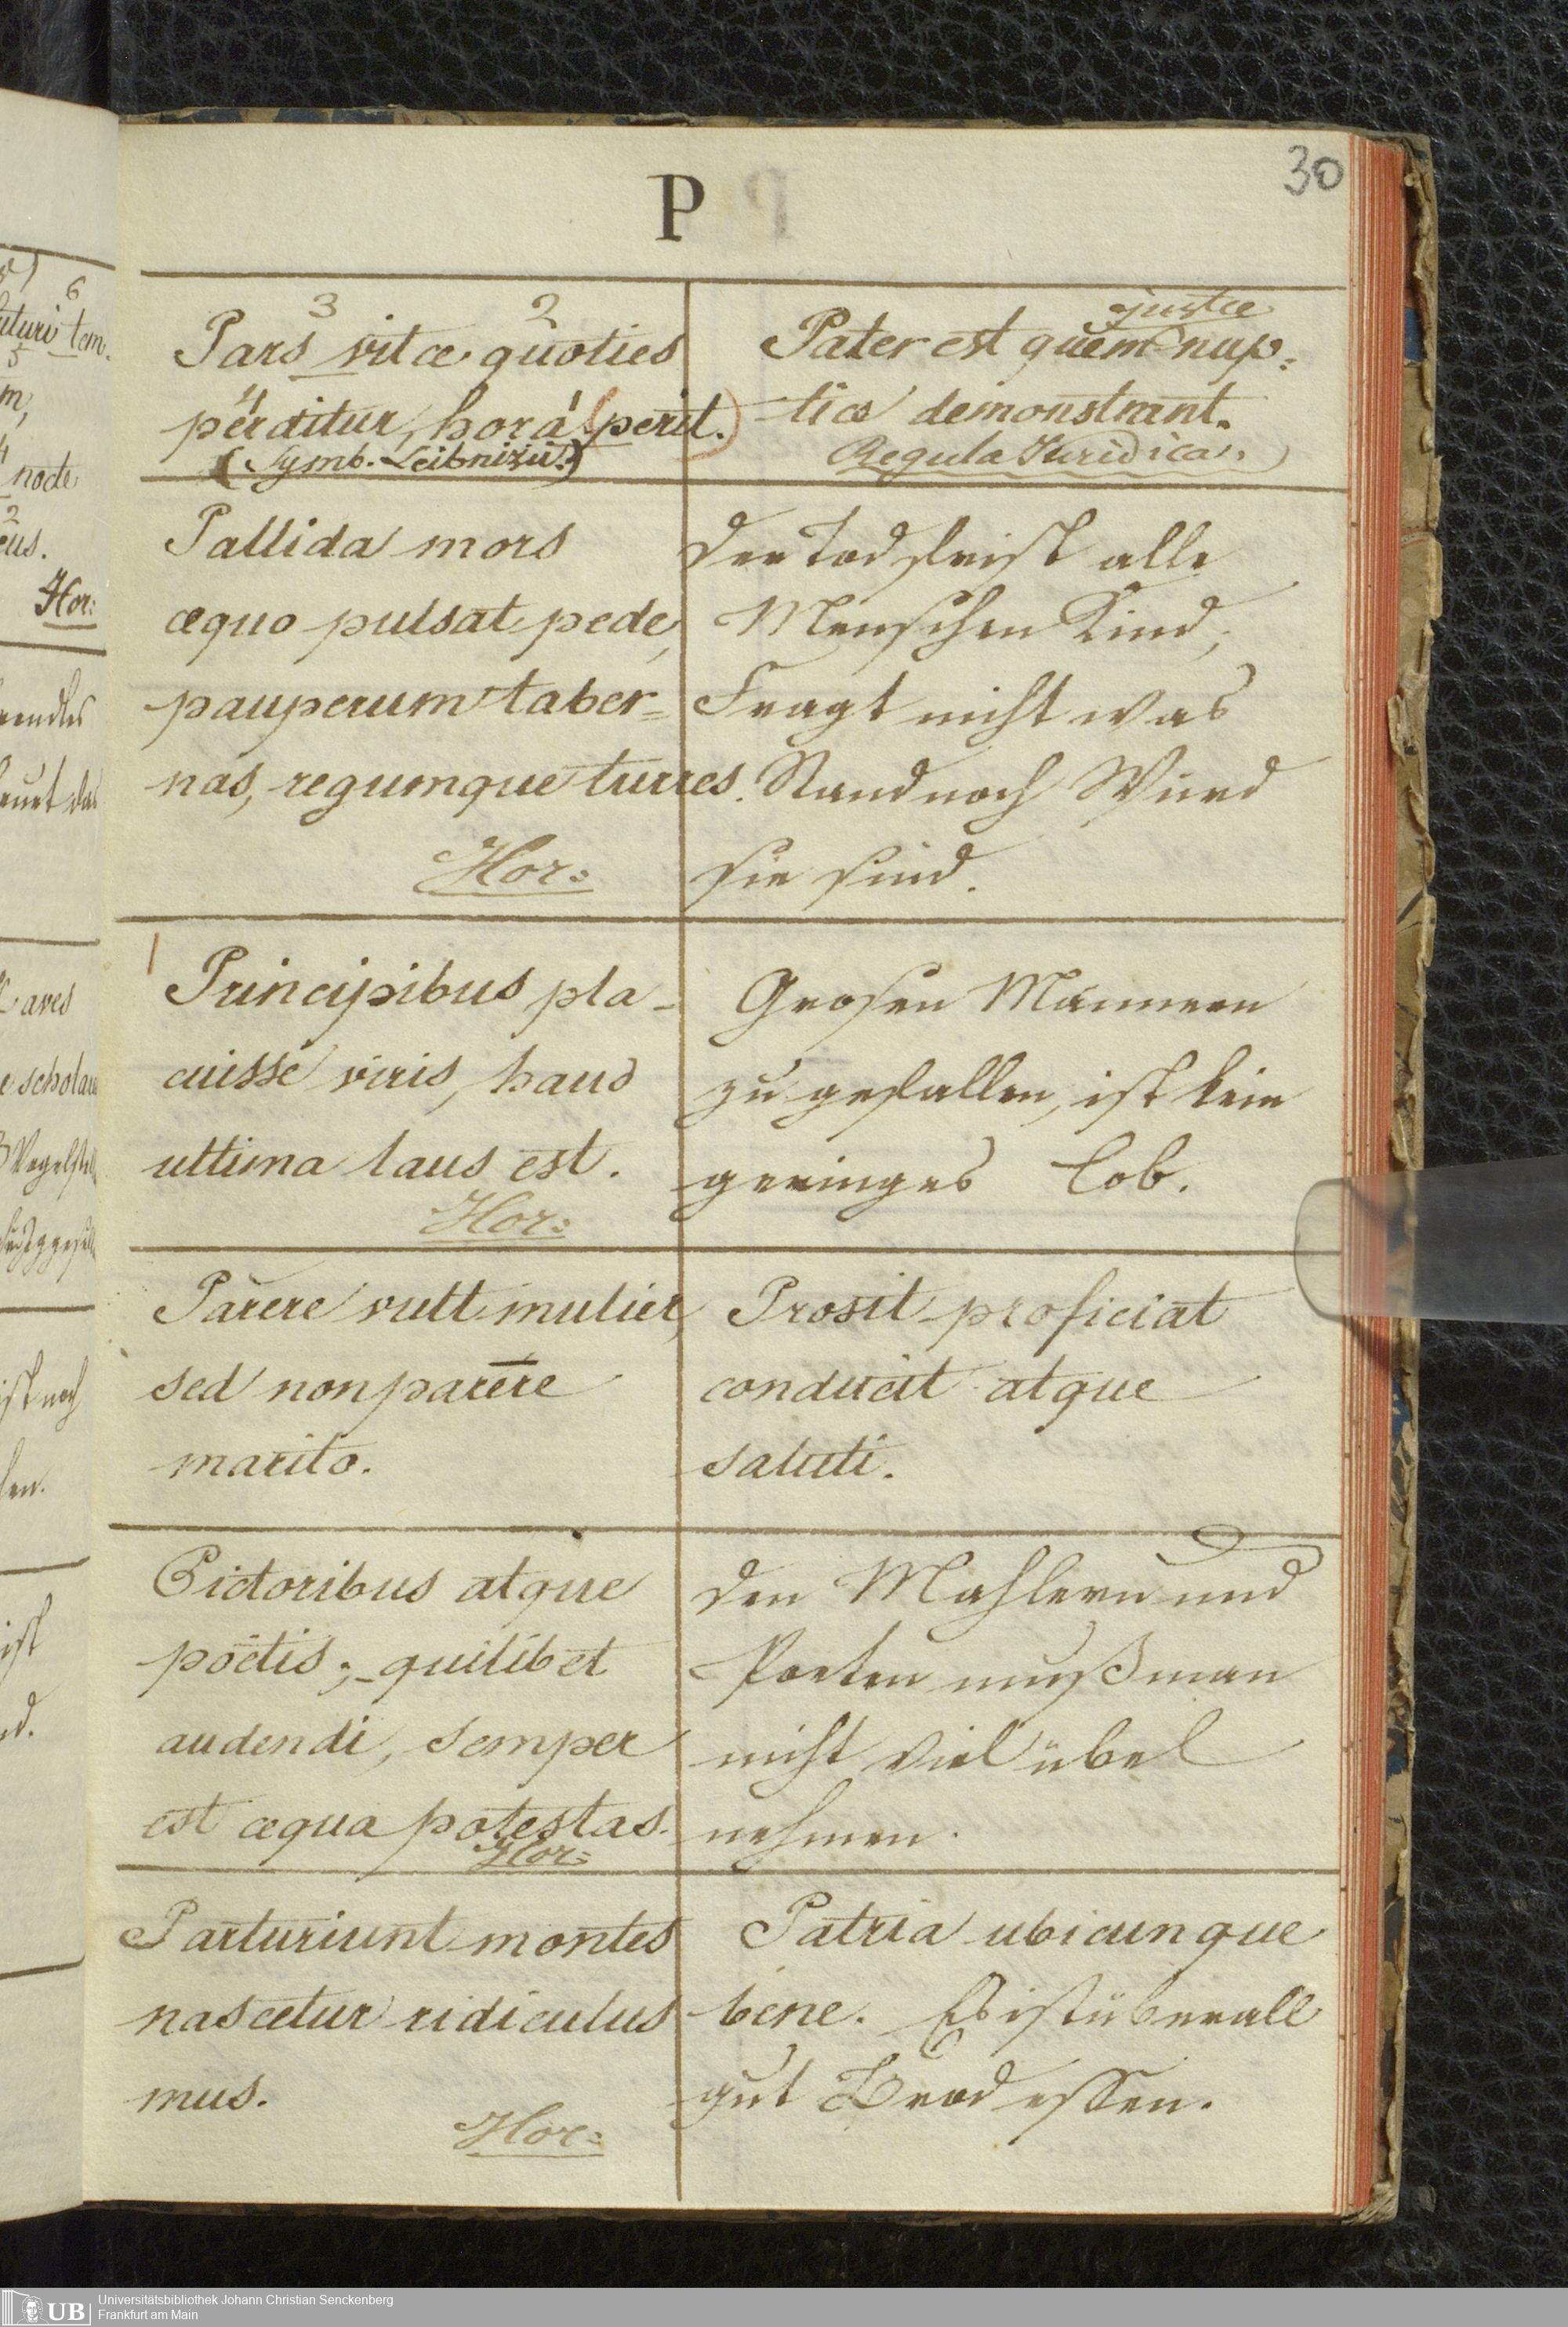 30
P
3 2
Pars vitæ quoties
4 1
perditur, hora (perit.)
(Symb. Leibnizii.)
justæ
Pater est quem nup:
tiæ demonstrant.
Regula Juridica.
Pallida mors
æquo pulsat pede,
pauperum taber=
nas, regumque turres.
Hor:
Der Tod frist alle
Menschen Kind,
Fragt nicht was
Stand noch Würd
sie sind.
Principibus pla-
cuisse viris, haud
ultima laus est.
Hor:
Grosen Männern
zu gefallen, ist kein
geringes Lob.
Părere vult mulier,
sed non parēre
marito.
Prosit proficiat
conducit atque
saluti.
Pictoribus atque
poëtis; quilibet
audendi, semper
est æqua potestas.
Hor:
Den Mahlern und
Poeten muß man
nicht viel übel
nehmen.
Parturiunt montes
nascetur ridiculus
mus.
Hor:
Patria ubicunque
bene. Es ist überall
gut Brod essen.
6
uturi tem.
5
m,
4
node
2
eus.
Hor:
aves
e scholam
ist noch
len.
ist
nd.
UB
Universitätsbibliothek Johann Christian Senckenberg
Frankfurt am Main